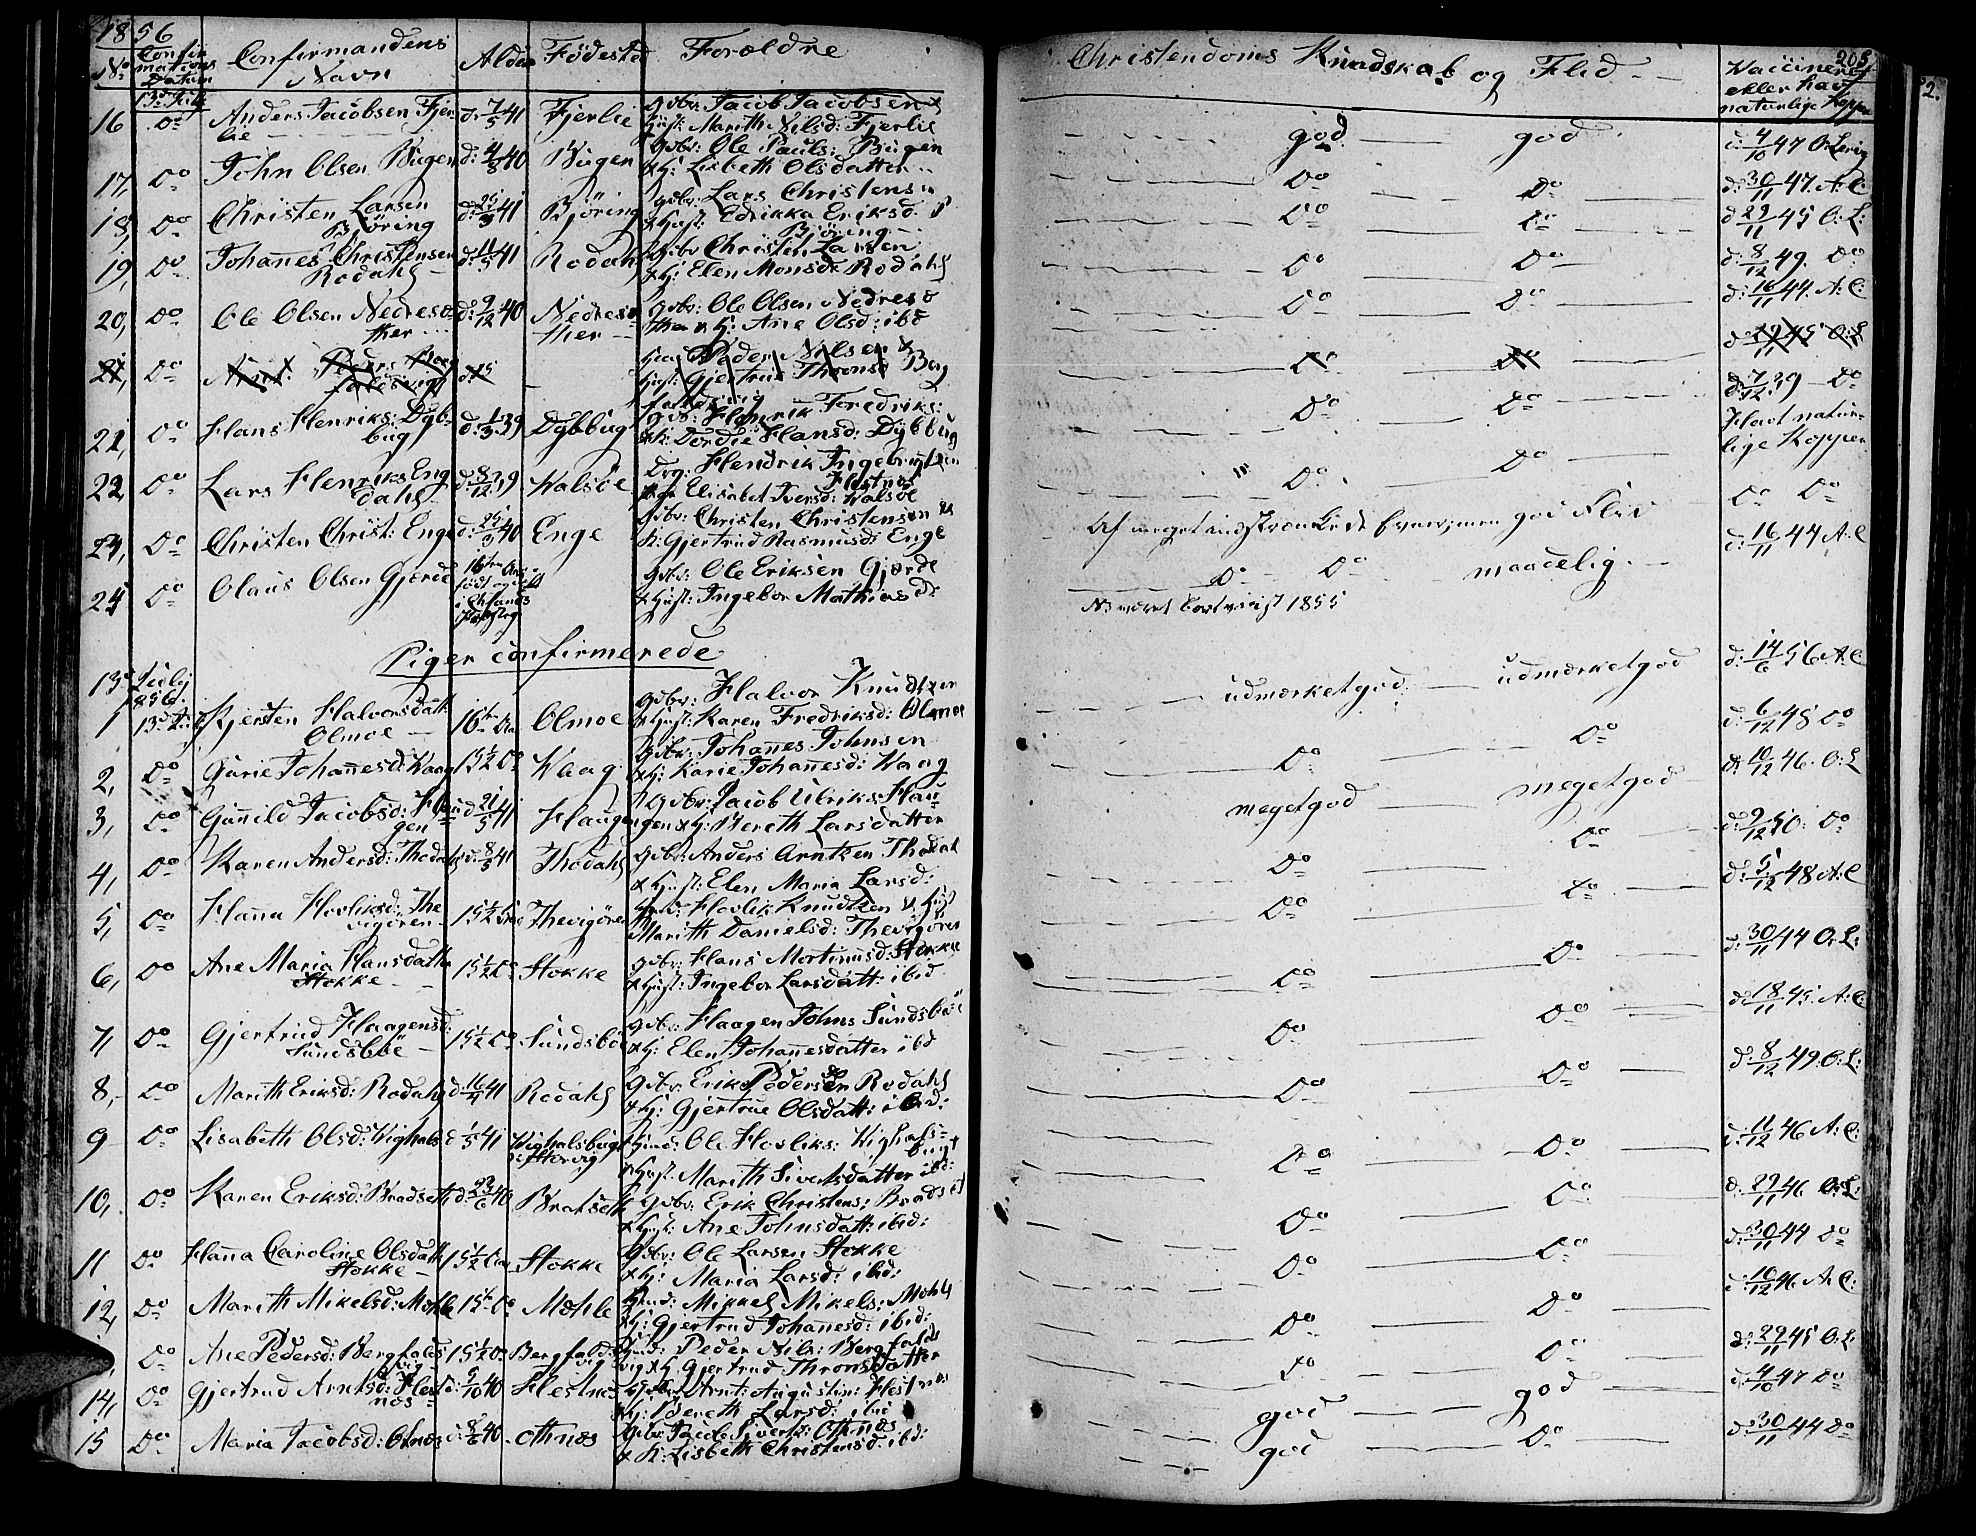 1856
No Confirmations Datum Confirmandens Navn Alder Fødested Forældre Christendoms Kundskab og Flid Vaccinered eller havt naturlige Kopper
205
13de July
16 Do Anders Jacobsen Fjerlie d: 7/5 41 Fjerlie Gdbr: Jacob Jacobsen &
Hust: Marith Nilsd: Fjerlie god god d: 4/10 47 O: Lervig
17, Do John Olsen Bugen d: 4/8 40 Bugen Gdbr: Ole Pauls: Bugen
& Hj: Lisbeth Olsdatter Do Do d: 30/11 47. A: C:
18, Do Christen Larsen Björing d: 25/3 41 Björing Gdbr: Lars Christensen
& Hust: Edrikka Eriksd: Björing Do Do d: 29/11 45 O: L:
19, Do Johannes Christensen Rodahl d: 11/5 41 Rodahl Gdbr Christen Larsen
& Hj: Elen Monsd: Rodahl Do Do d: 8/12 49. Do
20, Do Ole Olsen Nedresæther d: 9/12 40 Nedresæther Gdbr: Ole Olsen Nedresæ
ther & Hj: Ane Olsd: ibd Do Do d: 16/11 44. A: C:
21, Do Peder Nilsen &
Hust: Gjertrud Thronsd Berg Do Do d: 29/11 45 O: L
21, Do Hans Henriks: Dybbug d: 1/3 39 Dybbug Gdbr: Henrik Fredriks:
& H: Dordie Hansd: Dybbug Do Do d: 7/12 39 Do
22, Do Lars Henriks Engdahl d: 8/12 39 Halsöe Hendrik Ingebrigtsen Flestnæs
Elisabet Iversd: Halsöe Do Do Havt naturlige Kopper
23, Do Christen Christ: Enge d: 25/3 40 Enge Gdbr: Christen Christensen &
H: Gjertrud Rasmusd: Enge Af meget indskrænkede Evner; men god Flid Do Do
24 Do Olaus Olsen Gjerde 16ten Aar Gdbr: Ole Eriksen Gjærde
& Hust: Ingebor Mathiasd: Do Do maadelig. d: 16/11 44 A: C
NB været bortviist 1855
Piger confirmerede
13de July 1856
1 13de July Kjersten Halvorsdatt: Olmoe 16ten Aar Olmoe Gdbr: Halvor Knudtzen
& Hust: Karen Fredriksd: Olmoe udmærket god udmærket god d: 14/6 56 A: C
2, Do Gurie Johannesd: Waag 15 1/2 Do Waag Gdbr: Johannes Johnsen
& Hj: Karie Johannesd: Waag Do Do d: 6/12 45 Do
3, Do Gunild Jacobsd: Haugen d: 21/5 41 Haugen Gdbr: Jacob Ulriks: Hau
gen & Hj: Bereth Larsdatter meget god meget god d: 10/12 46. O: L
4, Do Karen Andersd: Thodahl d: 8/5 41 Thodahl Gdbr: Anders Arntzen Thodahl
& Hust: Elen Maria Larsd: Do Do d: 9/12 50: Do
5, Do Hanna Hovliksd: Thevigören 15 1/2 Do Thevigören Hovlik Knudtzen & Hust
Marith Danielsd: Thevigören Do Do d: 5/12 48 A: C
6, Do Ane Maria Hansdatter Stokke 15 1/2 Do Stokke Gdbr: Hans Mortinusd: Stokke
& Hust: Ingebor Larsdatt: ibid Do Do d: 30/11 44 O: L:
7, Do Gjertrud Haagensd: Sundsböe 15 1/2 Do Sundsböe Gdbr: Haagen Johns Sundsböe
& Hj: Elen Johannesdatter ibd Do Do d: 18/11 45. A: C:
8, Do Marith Eriksd: Rodahl d: 16/4 41 Rodahl Gdbr: Erik Pedersen Rodahl
& Hj: Gjertrue Olsdatt: ibid: Do Do d: 8/12 49. O: L:
9 Do Lisabeth Olsd: Highals 41 Highalsbugt Huusm: Ole Hovliks: Highals=
bugt & Hust. Marith Sivertsdatter ibd: Do Do d: 11/12 46 A: C:
10, Do Karen Eriksd: Bradseth d: 23/6 40 Bratseth Gdbr: Erik Christens: Bradset
& Hust: Ane Johnsdatt: ibid: Do Do d: 29/11 46 O: L:
11 Do Hanna Caroline Olsdatt Stokke 15 1/2 Aar Stokke Gdbr: Ole Larsen Stokke
& Hj: Maria Larsd: ibid: Do Do d: 30/11 44 Do
12, Do Marith Mikelsd: Mohle 15 Do Mohle Huusm: Mikkel Mikels: Mohle
& Hj: Gjertrud Johannesd: ibid: Do Do d: 10/12 46 A: C:
Do Ane Pedersd: Bergfaldsvig 15 1/2 Do Bergfaldsvig Huusm: Peder Nils: Bergfalds
vig & Hj Gjertrud Thronsdatter Do Do d: 29/11 45 O: L:
14, Do Gjertrud Arntsd: Flestnæs d: 9/10 40 Flestnæs Gdbr Arnt: Augustin: Flestnæs
& Hj: Bereth Larsd: ibid god god d: 4/10 47 Do
15 Do Maria Jacobsd: Othnæs d: 8/6 40 Othnæs Gdbr Jacob Sivertz: Othnæs
& H: Lisbeth Christensd: ibd: god Do d: 30/11 44 Do